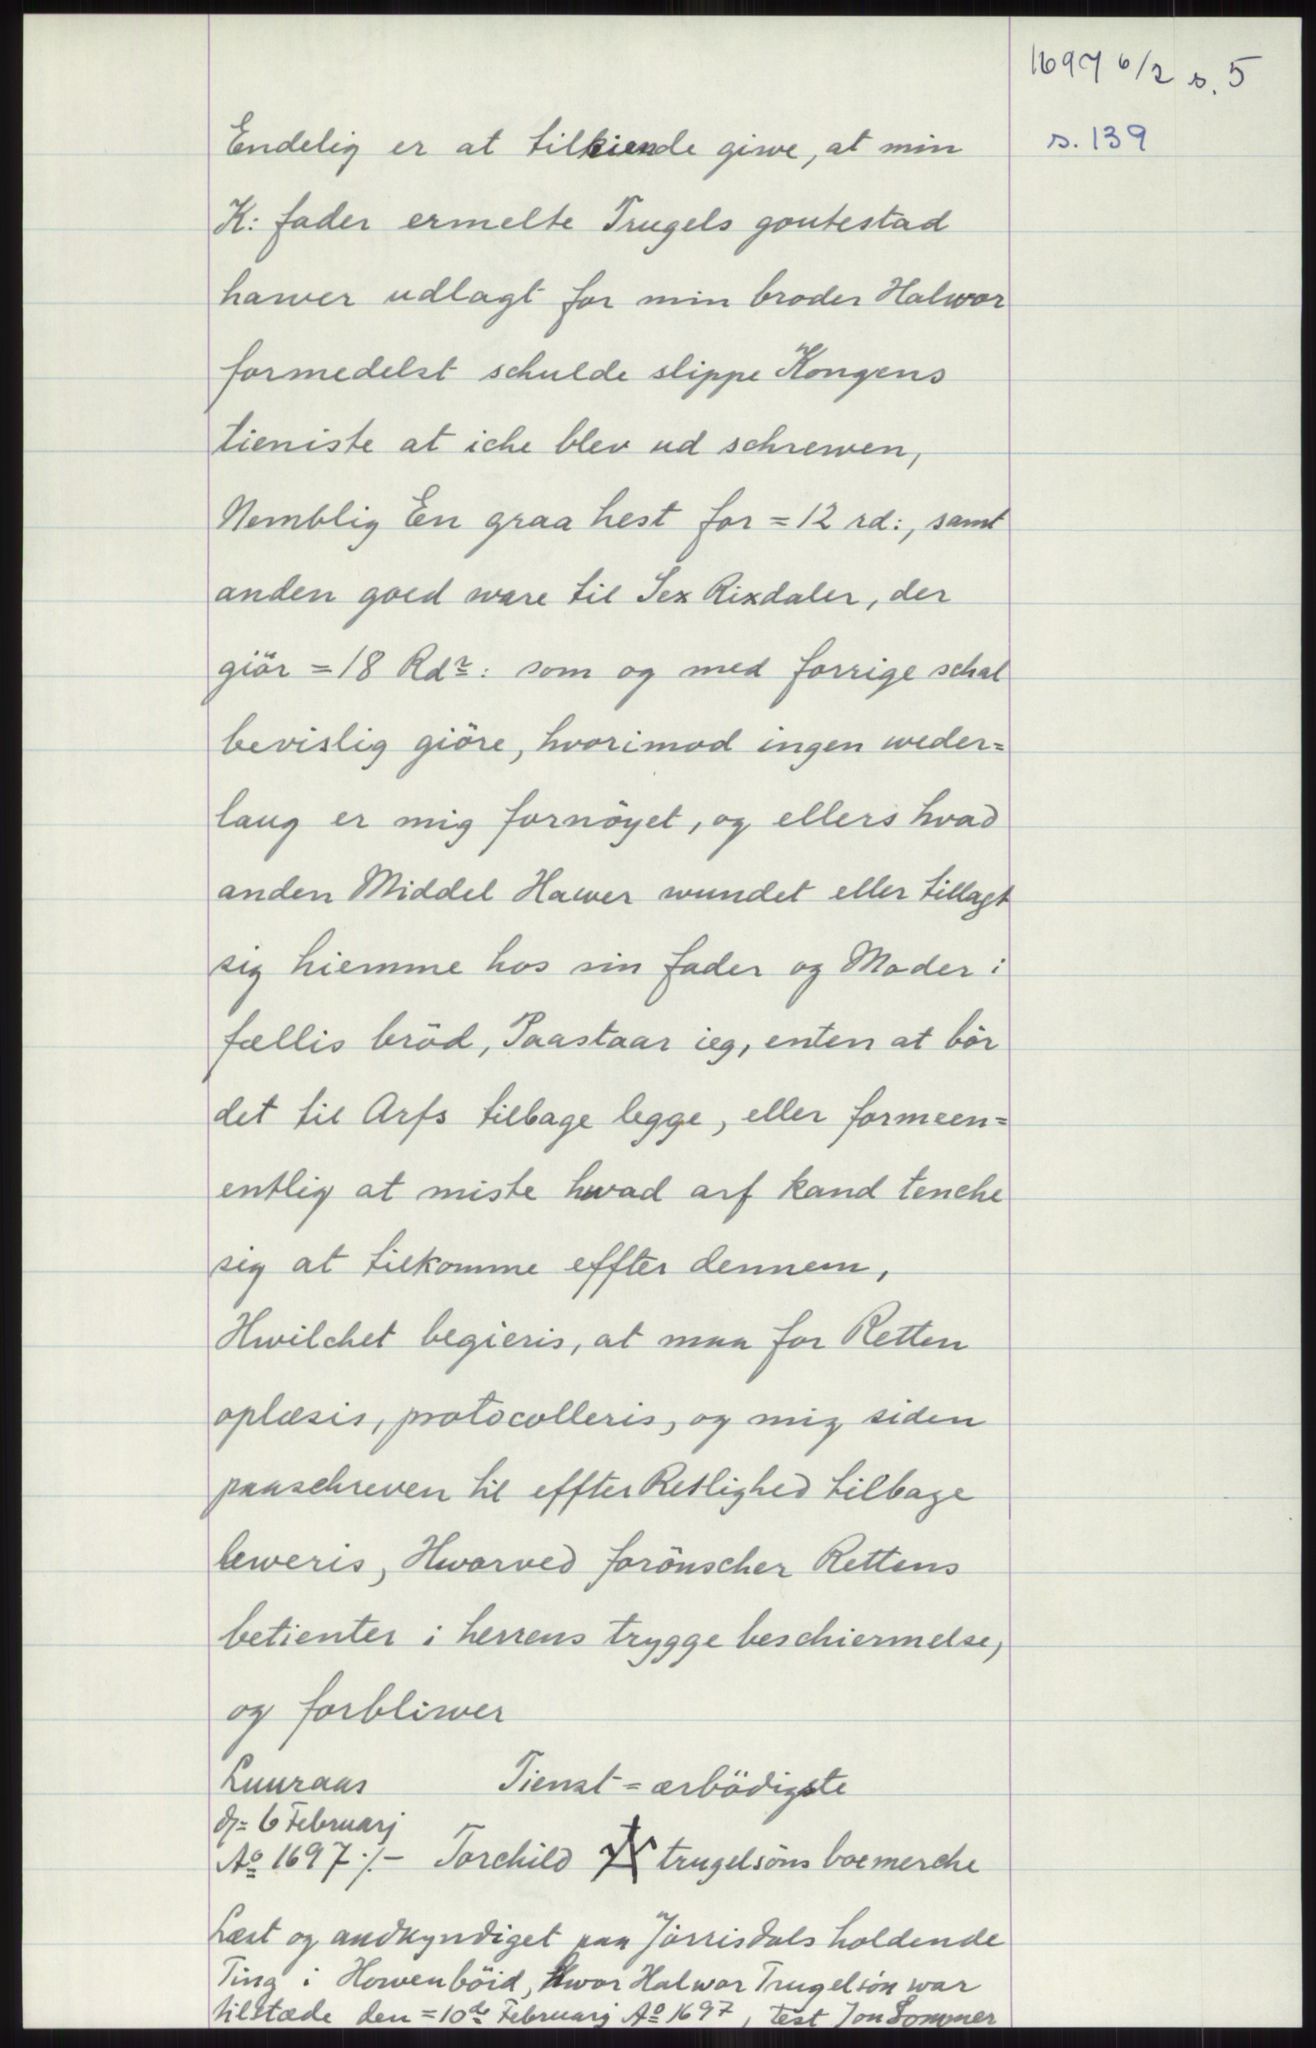 1697 6/2 s. 5
s. 139
Endelig er at tilkiende giwe, at min
K: fader ermelte Trugels goutestad
hawer udlagt for min broder Halwor
formedelst schulde slippe Kongens
tieniste at iche blev ud schrewen,
Nemblig En graa hest for = 12 rd:, samt
anden goed ware til Sex Rixdaler, der
giör = 18 Rdr: som og med forrige schal
bevislig giöre, hvorimod ingen weder=
laug er mig fornöyet, og ellers hvad
anden Middel Hawer wundet eller tillagt
sig hiemme hos sin fader og Moder i
fællis bröd, Paastaar ieg, enten at bör
det til Arfs tilbage legge, eller formeen=
entlig at miste hwad arf kand tenche
sig at tilkomme effter dennem,
Hwilchet begieris, at maa for Retten
oplæsis, protocolleris, og mig siden
paaschreven til effter Retlighed tilbage
leweris, Hworved forönscher Rettens
betienter i herrens trygge beschiermelse,
og forbliwer
Luuraas Tienst = ærbödigste
d= 6 Februarj
Ao 1697 ·/.– Torchild trugelsöns boemerche
Læst og andkyndiget paa Jörrisdals holdende
Ting i Howenböid, hwor Halwor Trugelsön war
tilstæde den = 10de Februarj Ao 1697, test Jon Sommer